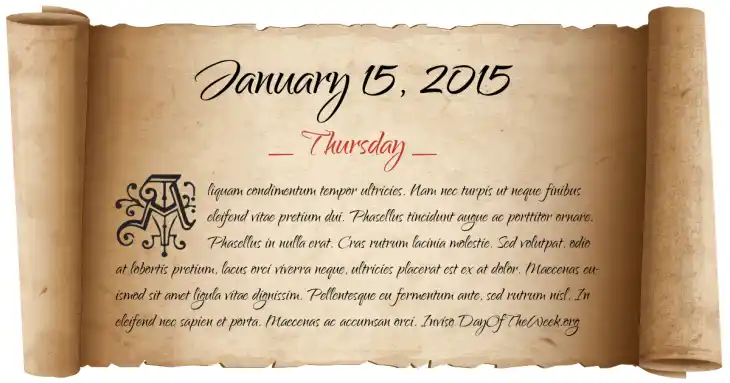 January 15, 2015
Thursday
Aliquam condimentum tempor ultricies. Nam nec turpis ut neque finibus
eleifend vitae pretium dui. Phasellus tincidunt augue ac porttitor ornare.
Phasellus in nulla erat. Cras rutrum lacinia molestie. Sed volutpat, odio
at lobortis pretium, lacus orci viverra neque, ultricies placerat est ex at dolor. Maecenas eu-
ismod sit amet ligula vitae dignissim. Pellentesque eu fermentum ante, sed rutrum nisl. In
eleifend nec sapien et porta. Maecenas ac accumsan orci. Inviso DayOfTheWeek.org